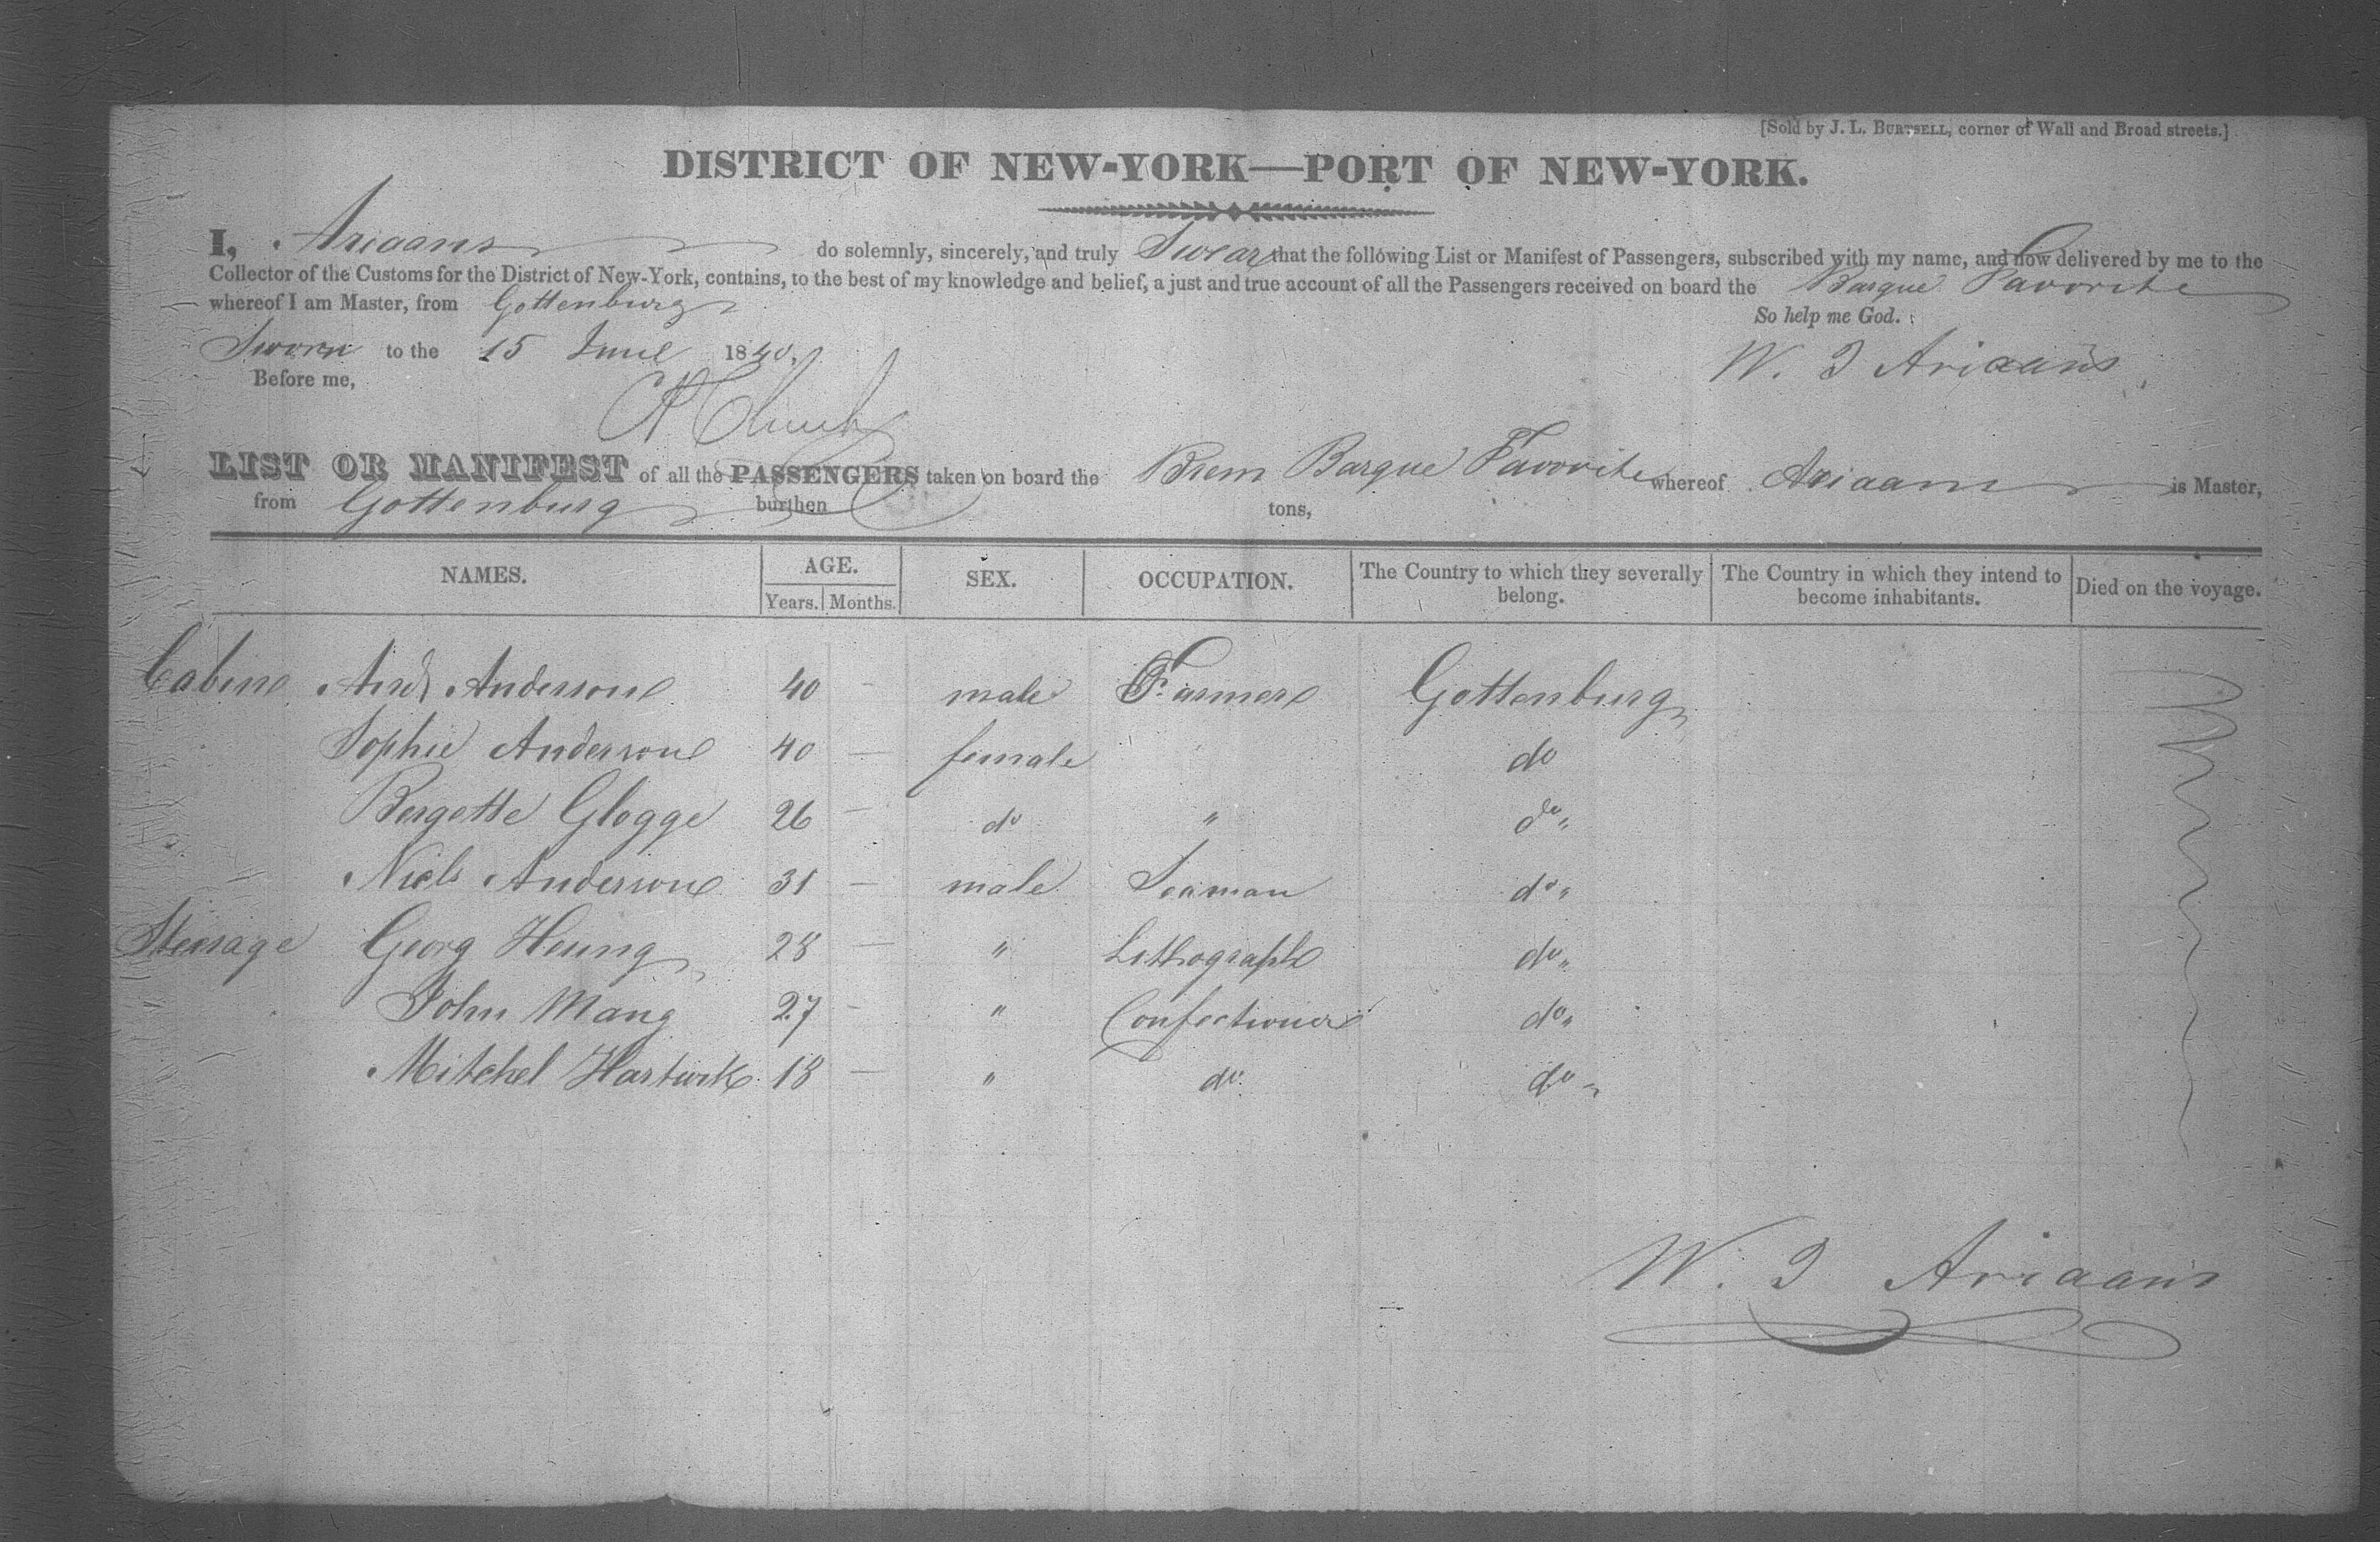 [Sold by J. L. BURTSELL, corner of Wall and Broad streets.]
DISTRICT OF NEW-YORK—PORT OF NEW-YORK.
I, Ariaans do solemnly, sincerely, and truly Swear that the following List or Manifest of Passengers, subscribed with my name, and now delivered by me to the
Collector of the Customs for the District of New-York, contains, to the best of my knowledge and belief, a just and true account of all the Passengers received on board the Barque Favorite
whereof I am Master, from Gottenburg
So help me God.
Sworn to the 15 June 1840.
W. J Ariaans
Before me,
LIST OR MANIFEST of all the PASSENGERS taken on board the Brem Barque Favorite whereof Ariaans is Master,
from Gottenburg burthen tons,
NAMES. AGE. Years. Months. SEX. OCCUPATION. The Country to which they severally belong. The Country in which they intend to become inhabitants. Died on the voyage.
Cabine Andr Anderson 40 — male Farmer Gottenburg
Sophie Anderson 40 — female do
Bergette Glogge 26 — do " do "
Niels Anderson 31 — male Seaman do "
Steerage Georg Heung 28 — " Lithograph do "
John Mang 27 — " Confectioner do "
Mitchel Hartwik 18 — " do do "
W. J Ariaans